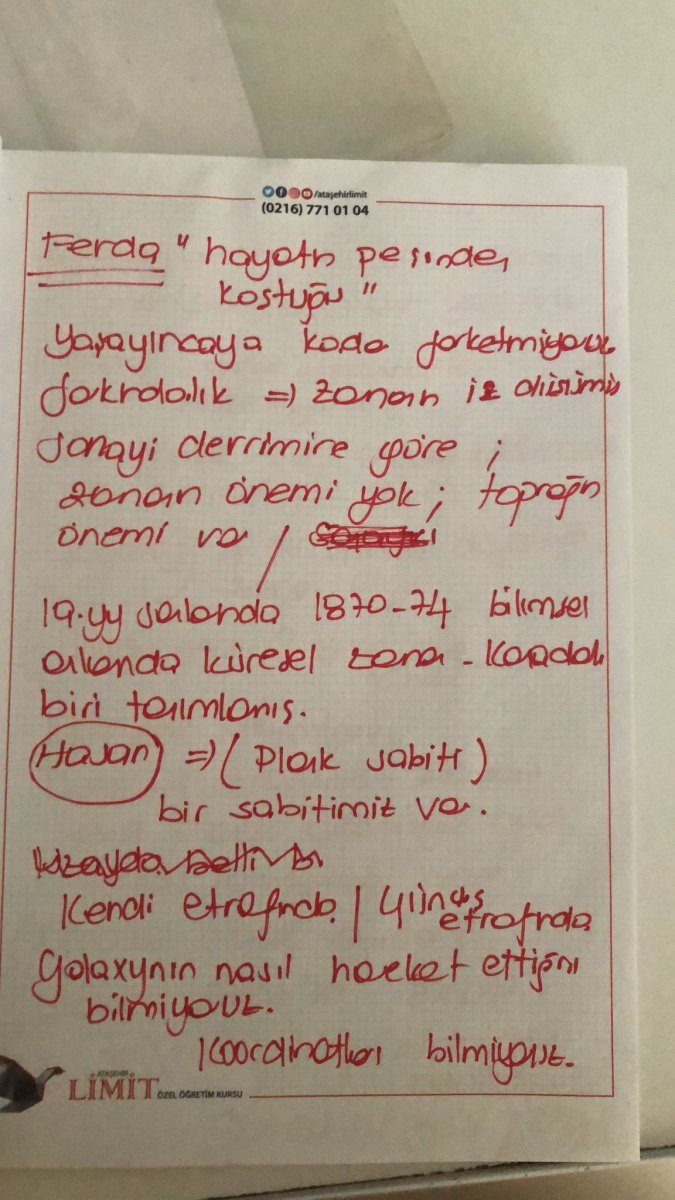 /ataşehirlimit
(0216) 771 01 04
Ferda " hayatın peşinden
koştuğu "
Yaşayıncaya kada farketmiyoruz
farkındalık => zaman
sanayi devrimine göre ;
zaman önemi yok ; toprağın
önemi va /
19.yy sonlarında 1870-74 bilimsel
alanda küresel zaman - Kanadalı
biri tanımlamış.
Hasan => ( Plank sabiti )
bir sabitimiz va.
Kendi etrafında / Güneş
etrafında
galaxynin nasıl hareket ettiğini
bilmiyoruz.
Koordinatları bilmiyoruz.
ATAŞEHİR
LİMİT ÖZEL ÖĞRETİM KURSU